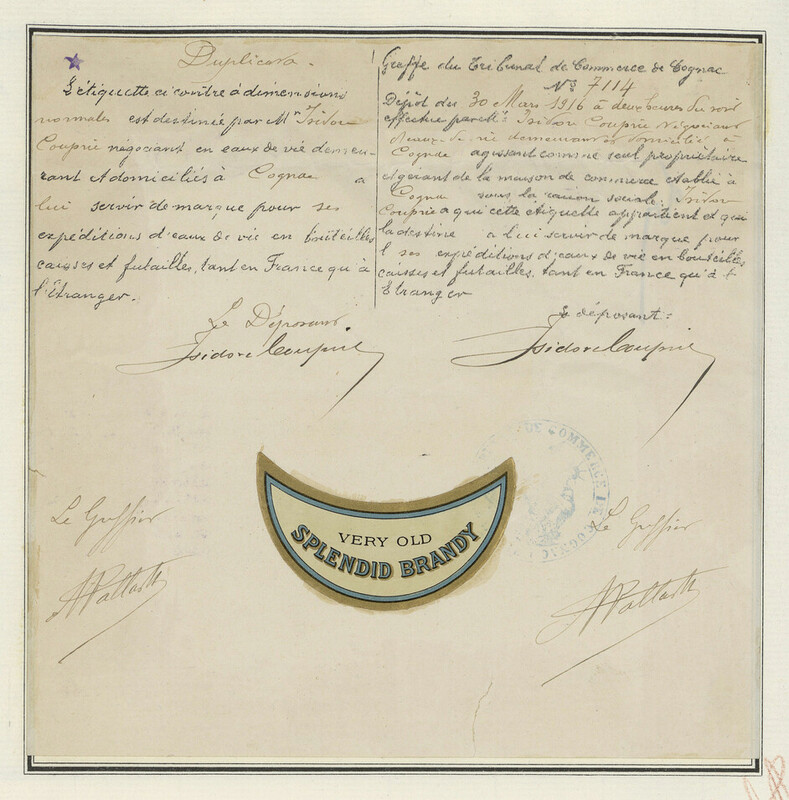 Duplicata.
L'étiquette ci contre à dimensions
normales est destinée par Mr Isidore
Couprie négociant en eaux de vie demeu-
rant & domiciliés à Cognac a
lui servir de marque pour ses
expéditions d'eaux de vie en bouteilles
caisses et futailles, tant en France qu'à
l'Étranger.
Le Déposant
Isidore Couprie
Greffe du Tribunal de Commerce de Cognac
No 7114
Dépôt du 30 Mars 1916 à deux heures du soir
effectué par Isidore Couprie négociant
d'eaux de vie demeurant & domicilié à
Cognac agissant comme seul propriétaire
et gérant de la maison de commerce établie à
Cognac sous la raison sociale: Isidore
Couprie a qui cette etiquette appartient et qui
la destine a lui servir de marque pour
ses expéditions d'eaux de vie en bouteilles
caisses et futailles, tant en France qu'à l'
Etranger
Le déposant:
Isidore Couprie
VERY OLD
SPLENDID BRANDY
DE COMMERCE DE COGNAC
Le Greffier
Le Greffier